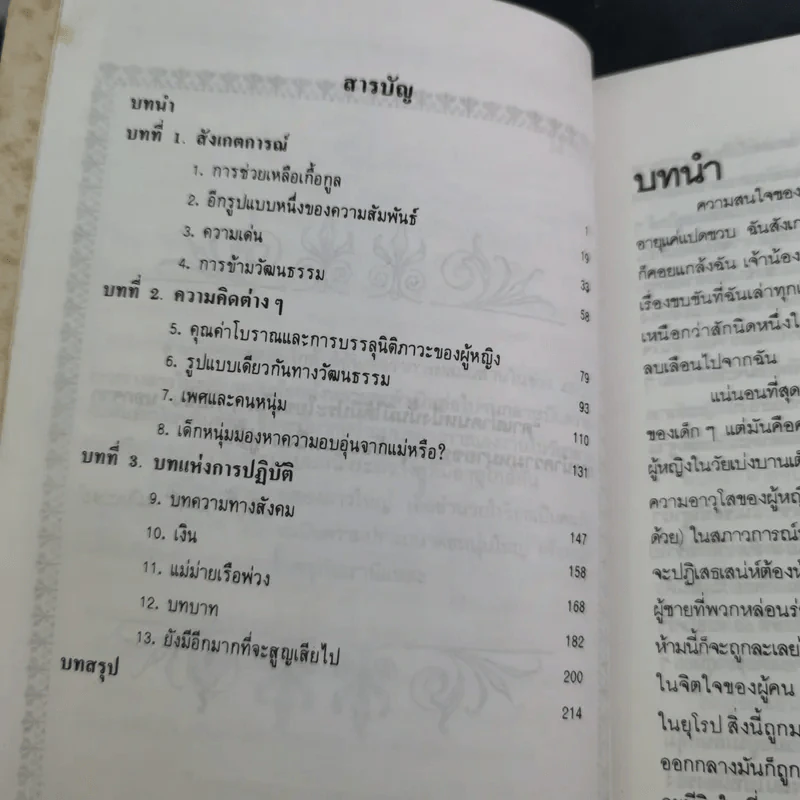 สารบัญ
บทนำ
บทที่ 1. สังเกตการณ์
1. การช่วยเหลือเกื้อกูล 1
2. อีกรูปแบบหนึ่งของความสัมพันธ์ 19
3. ความเด่น 33
4. การข้ามวัฒนธรรม 58
บทที่ 2. ความคิดต่าง ๆ
5. คุณค่าโบราณและการบรรลุนิติภาวะของผู้หญิง 79
6. รูปแบบเดียวกันทางวัฒนธรรม 93
7. เพศและคนหนุ่ม 110
8. เด็กหนุ่มมองหาความอบอุ่นจากแม่หรือ? 131
บทที่ 3. บทแห่งการปฏิบัติ
9. บทความทางสังคม 147
10. เงิน 158
11. แม่ม่ายเรือพ่วง 168
12. บทบาท 182
13. ยังมีอีกมากที่จะสูญเสียไป 200
บทสรุป 214
บทนำ
ความสนใจของ
อายุแค่แปดขวบ ฉันสังเก
ก็คอยแกล้งฉัน เจ้าน้อง
เรื่องขบขันที่ฉันเล่าทุก
เหนือกว่าสักนิดหนึ่งใ
ลบเลือนไปจากฉัน
แน่นอนที่สุด
ของเด็ก ๆ แต่มันคือค
ผู้หญิงในวัยเบ่งบานเต็
ความอาวุโสของผู้หญิ
ด้วย) ในสภาวการณ์
จะปฏิเสธเสน่ห์ต้อง
ผู้ชายที่พวกหล่อนร่
ห้ามนี้ก็จะถูกละเลย
ในจิตใจของผู้คน
ในยุโรป สิ่งนี้ถูกม
ออกกลางมันก็ถูก